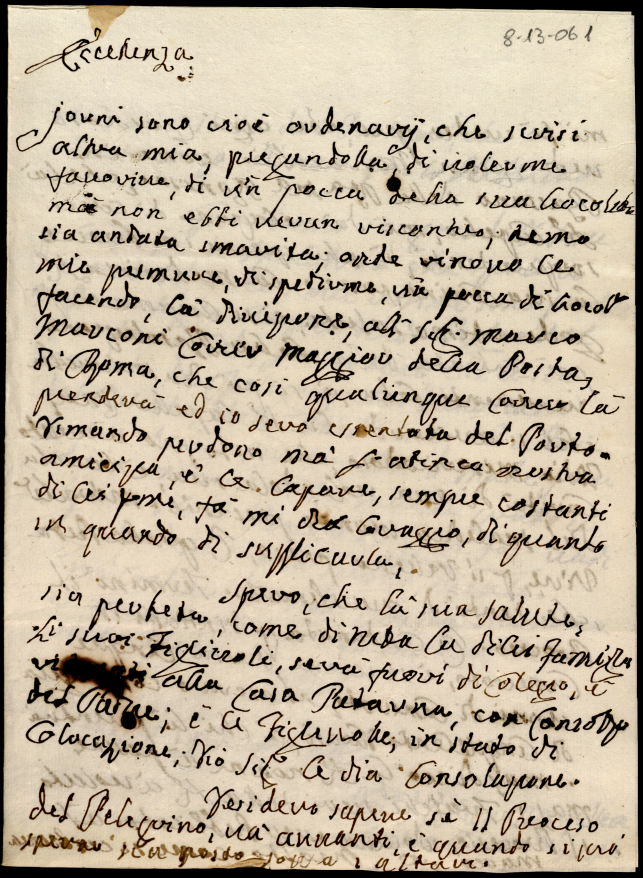 8-13-061
Eccellenza
sono cioè ordenarij, che scrissi
altra mia, pregandolla, di volerme
favorire, di un pocca della sua
mà non ebbi verun riscontro, temo
sia andata smarita; onde rinovo le
mie premure, di spedirme, un pocca di
facendo, la direzione, al Sig. Marco
Marconi Corier maggior della Posta,
di Roma, che così qualunque Corier la
prenderà ed io sarò del Porto
dimando perdono mà l'antica nostra
amicizia, è le sempre costanti
di Lei fà mi dia Coraggio, di quanto
in quando di suplicarla,
Spero, che la sua salute,
sia perfeta, come di tutta la di lei Famiglia
Li suoi Figlioli, serà fuori di Colegio, è
alla Casa Paterna, con
del Padre; è le Figliuole, in stato di
Colocazione, Dio le dia Consolazione.
Desidero sapere se Il Processo
del Pelegrino, và avvanti, è quando si
sopra i altari.